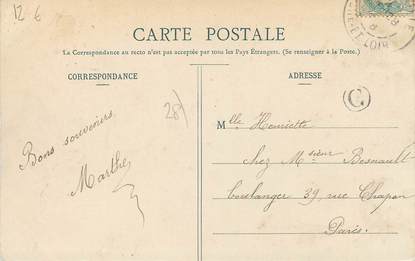 12 €
CARTE POSTALE
La Correspondance au recto n'est pas acceptée par tous les Pays Étrangers. (Se renseigner à la Poste.)
CORRESPONDANCE
ADRESSE
28)
C
Bons souvenirs
Marthe
Mlle Henriette
chez Msieur Besnault
boulanger 39 rue Chapon
Paris.
ET-LOIR